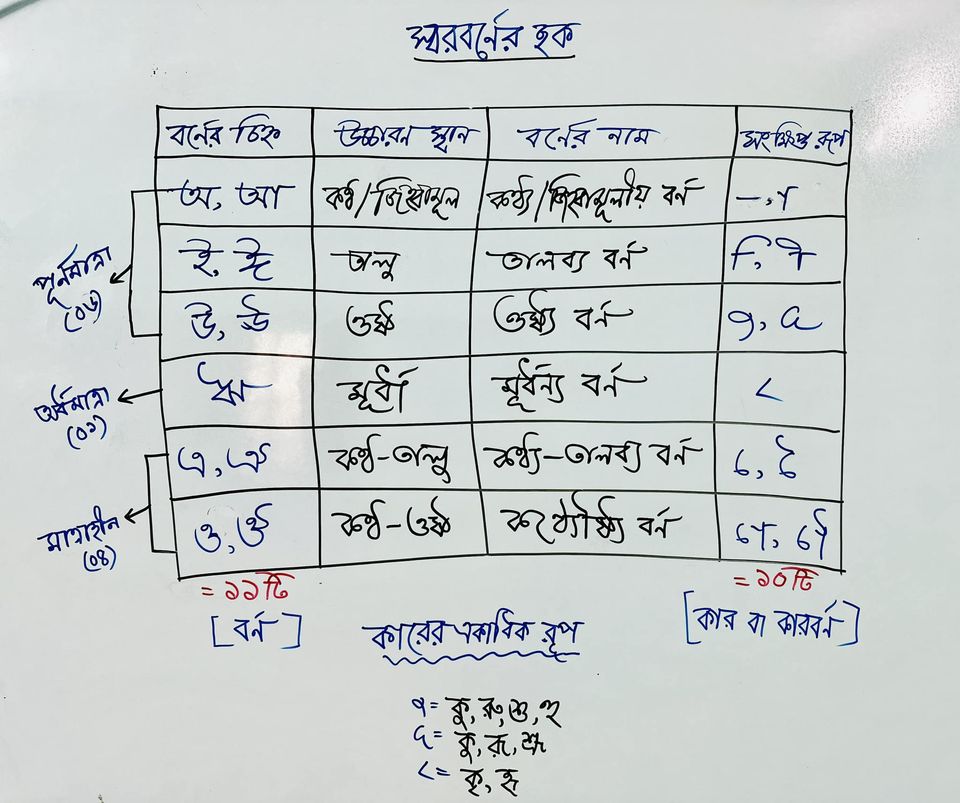 স্বরবর্নের ছক
বর্নের চিহ্ন উচ্চারন স্থান বর্নের নাম সংক্ষিপ্ত রূপ
অ, আ কন্ঠ/জিহ্বামূল কন্ঠ্য/জিহ্বামূলীয় বর্ন –, া
ই, ঈ তালু তালব্য বর্ন ি, ী
পূর্নমাত্রা
(০৬)
উ, ঊ ওষ্ঠ ওষ্ঠ্য বর্ন ু, ূ
অর্ধমাত্রা
(০১)
ঋ মূর্ধা মূর্ধন্য বর্ন ৃ
এ, ঐ কন্ঠ-তালু কন্ঠ্য-তালব্য বর্ন ে, ৈ
মাত্রাহীন
(০৪)
ও, ঔ কন্ঠ-ওষ্ঠ কন্ঠ্যৌষ্ঠ্য বর্ন ো, ৌ
= ১১টি = ১০টি
[বর্ন] [কার বা কারবর্ন]
কারের একাধিক রূপ
ু= কু, রু, শু, হু
ূ= কূ, রূ, শ্রূ
ৃ= কৃ, হৃ